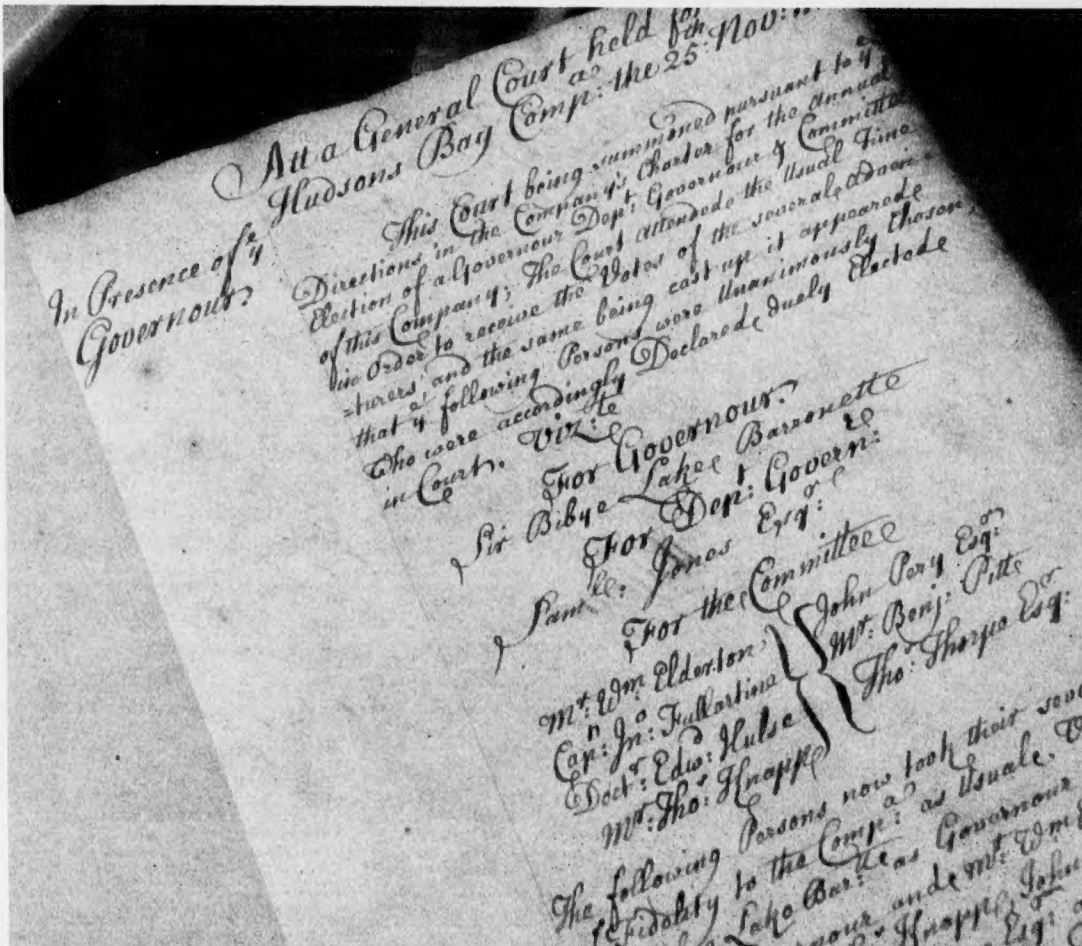 Att a General Court held for
Hudsons Bay Comp:ª the 25:th Nov:
In Presence of yͤ
Governour.
This Court being summoned pursuant to yͤ
Directions in the Company's Charter for the annual
Election of a Governour Dep:t Governour & Committee
of this Company; The Court attendede the Usual Time
in Order to receive the Votes of the severale Adven=
=turers and the same being cast up it appearede
that yͤ following Persons were Unanimously Chosen,
Who were accordingly Declarede duely Electede
in Court. Viz:te
For Governour.
Sir Bibye Lake Barronette
For Dep:t Govern:re
Sam:lle Jones Esq:r
For the Committee
Mr: Wm: Elderton
Cap:n Jn:o Fullartine
Doct:r Edw:d Hulse
Mr: Tho:s Knapp
John Pery Esq:r
Mr: Benj: Pitte
Tho:s Thorpe Esq:r
The following Persons now took their
Fidelity to the Comp:ª as Usuale.
Lake Bar:tte as Governour
ande Mr: Wm
Knapp, John
Esq:r